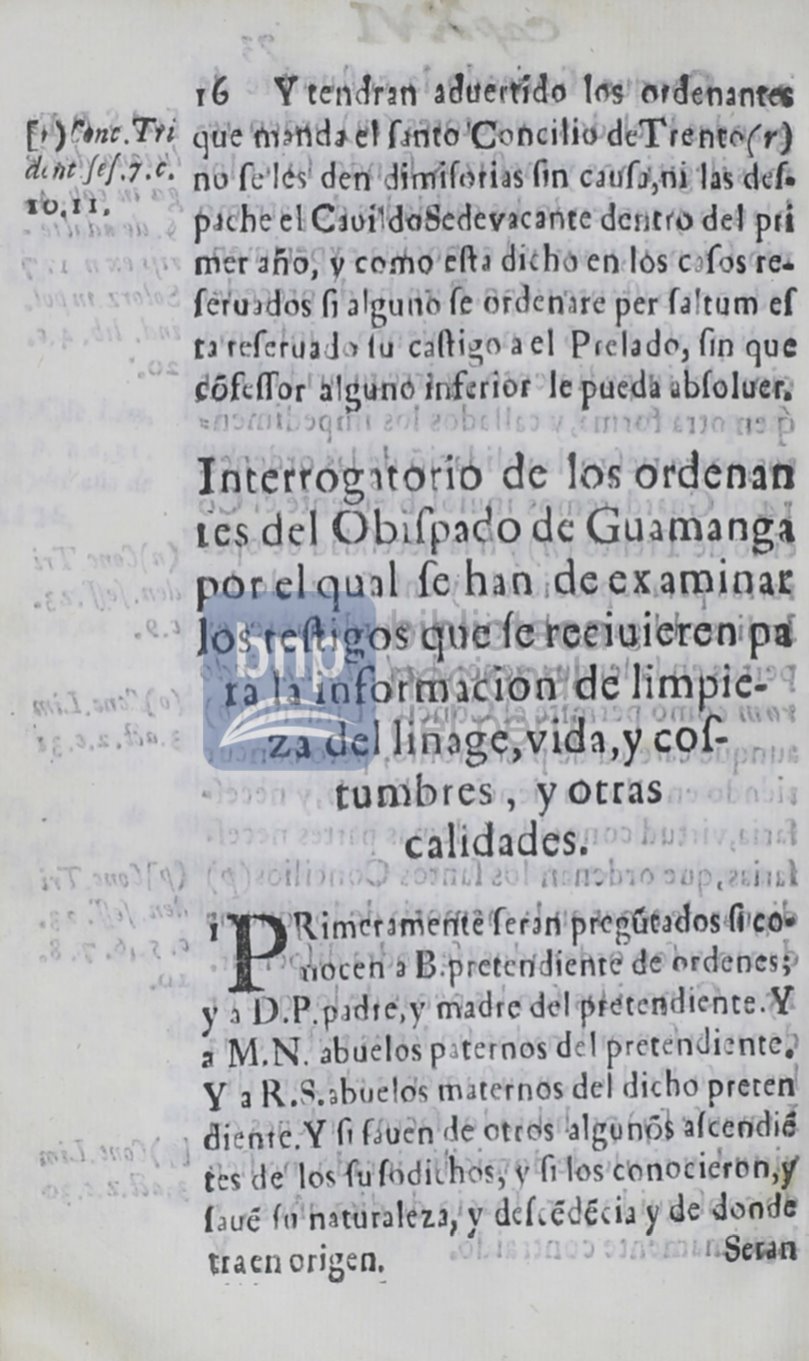 16 Y tendran aduertido los ordenantes
[r) Conc. Tri
dent ſeſ. 7. c.
10. 11.
que manda el ſanto Concilio de Trento (r)
no ſe les den dimiſorias ſin cauſa, ni las deſ-
pache el Cauildo Sedevacante dentro del pri
mer año, y como eſta dicho en los caſos re-
ſeruados ſi alguno ſe ordenare per ſaltum eſ
ta reſeruado ſu caſtigo a el Prelado, ſin que
cõfeſſor alguno inferior le pueda abſoluer.
Interrogatorio de los ordenan
tes del Obiſpado de Guamanga
por el qual ſe han de examinar
los teſtigos que ſe reciuieren pa
ra la informacion de limpie-
za del linage, vida, y coſ-
tumbres, y otras
calidades.
1 PRimeramente ſeran pregũtados ſi co-
nocen a B. pretendiente de ordenes;
y a D. P. padre, y madre del pretendiente. Y
a M. N. abuelos paternos del pretendiente.
Y a R. S. abuelos maternos del dicho preten
diente. Y ſi ſauen de otros algunos aſcendiẽ
tes de los ſuſodichos, y ſi los conocieron, y
ſauẽ ſu naturaleza, y deſcẽdẽcia y de donde
traen origen.
Seran
bnp